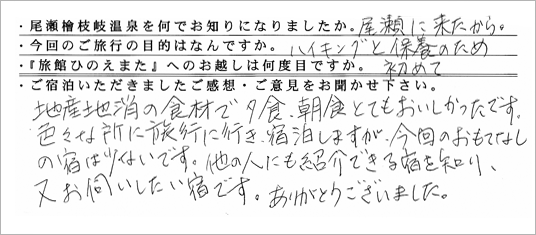 ・尾瀬檜枝岐温泉を何でお知りになりましたか。尾瀬に来たから。
・今回のご旅行の目的はなんですか。ハイキングと保養のため
・『旅館ひのえまた』へのお越しは何度目ですか。初めて
・ご宿泊いただきましたご感想・ご意見をお聞かせ下さい。
地産地消の食材で夕食、朝食とてもおいしかったです。
色々な所に旅行に行き、宿泊しますが、今回のおもてなし
の宿は少ないです。他の人にも紹介できる宿を知り、
又お伺いしたい宿です。ありがとうございました。